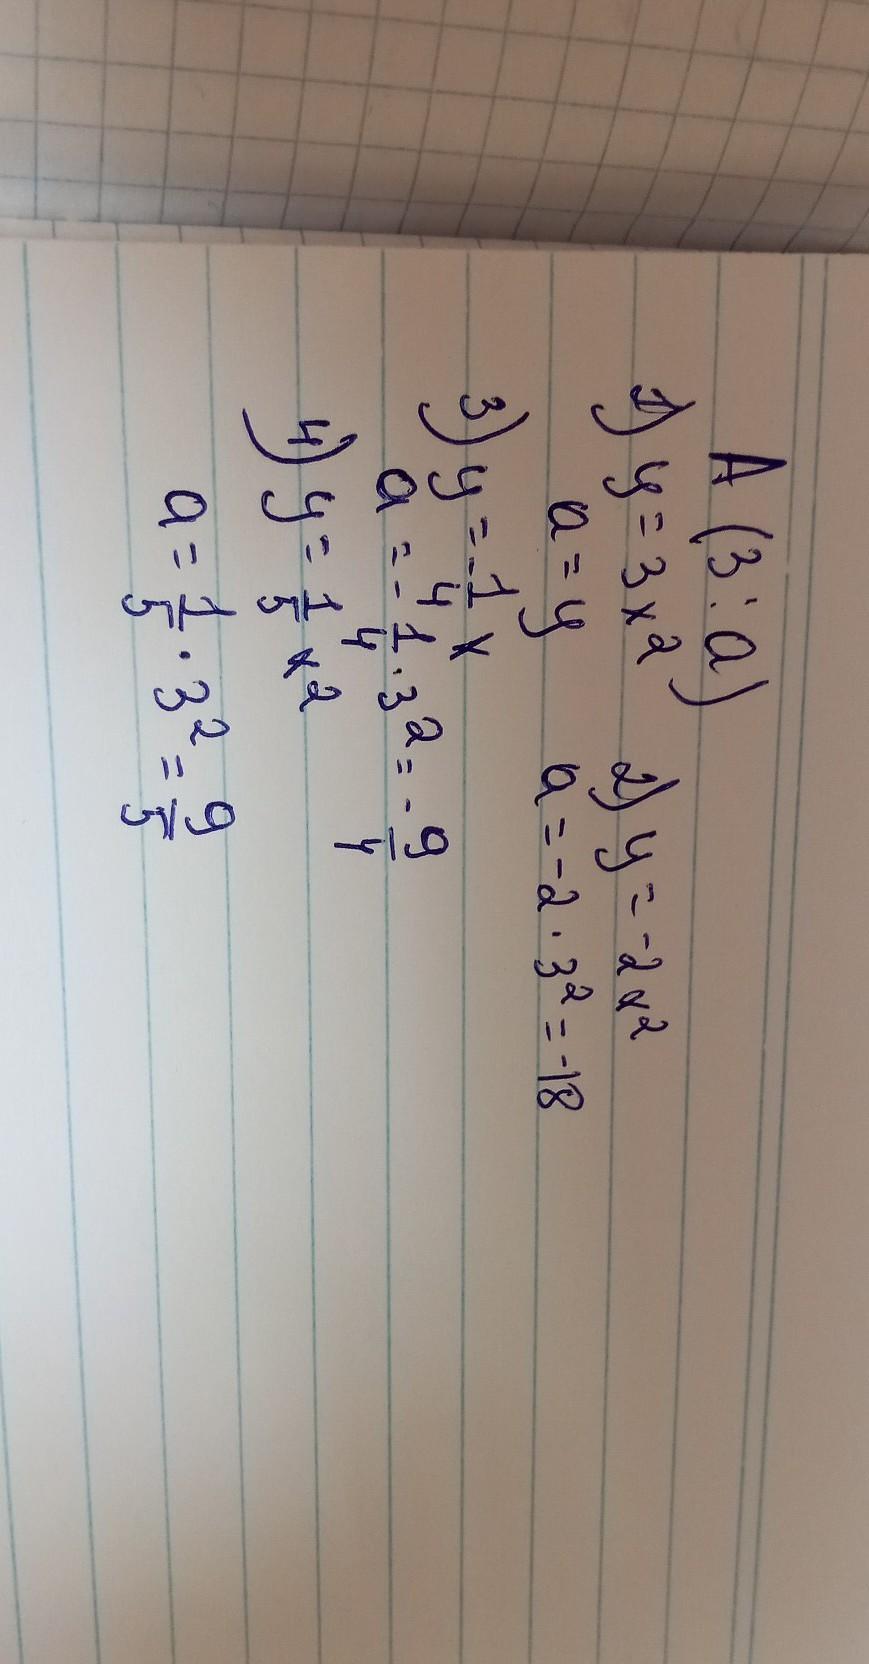 A (3 : a)
1) y = 3x² 2) y = -2x²
a = y a = -2 · 3² = -18
3) y = -1/4 x
a = -1/4 · 3² = -9/4
4) y = 1/5 x²
a = 1/5 · 3² = 9/5